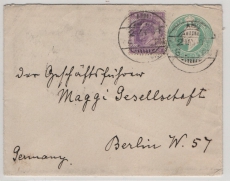 Der Geschäftsführer
Maggi Gesellschaft
Berlin W. 57
Germany.